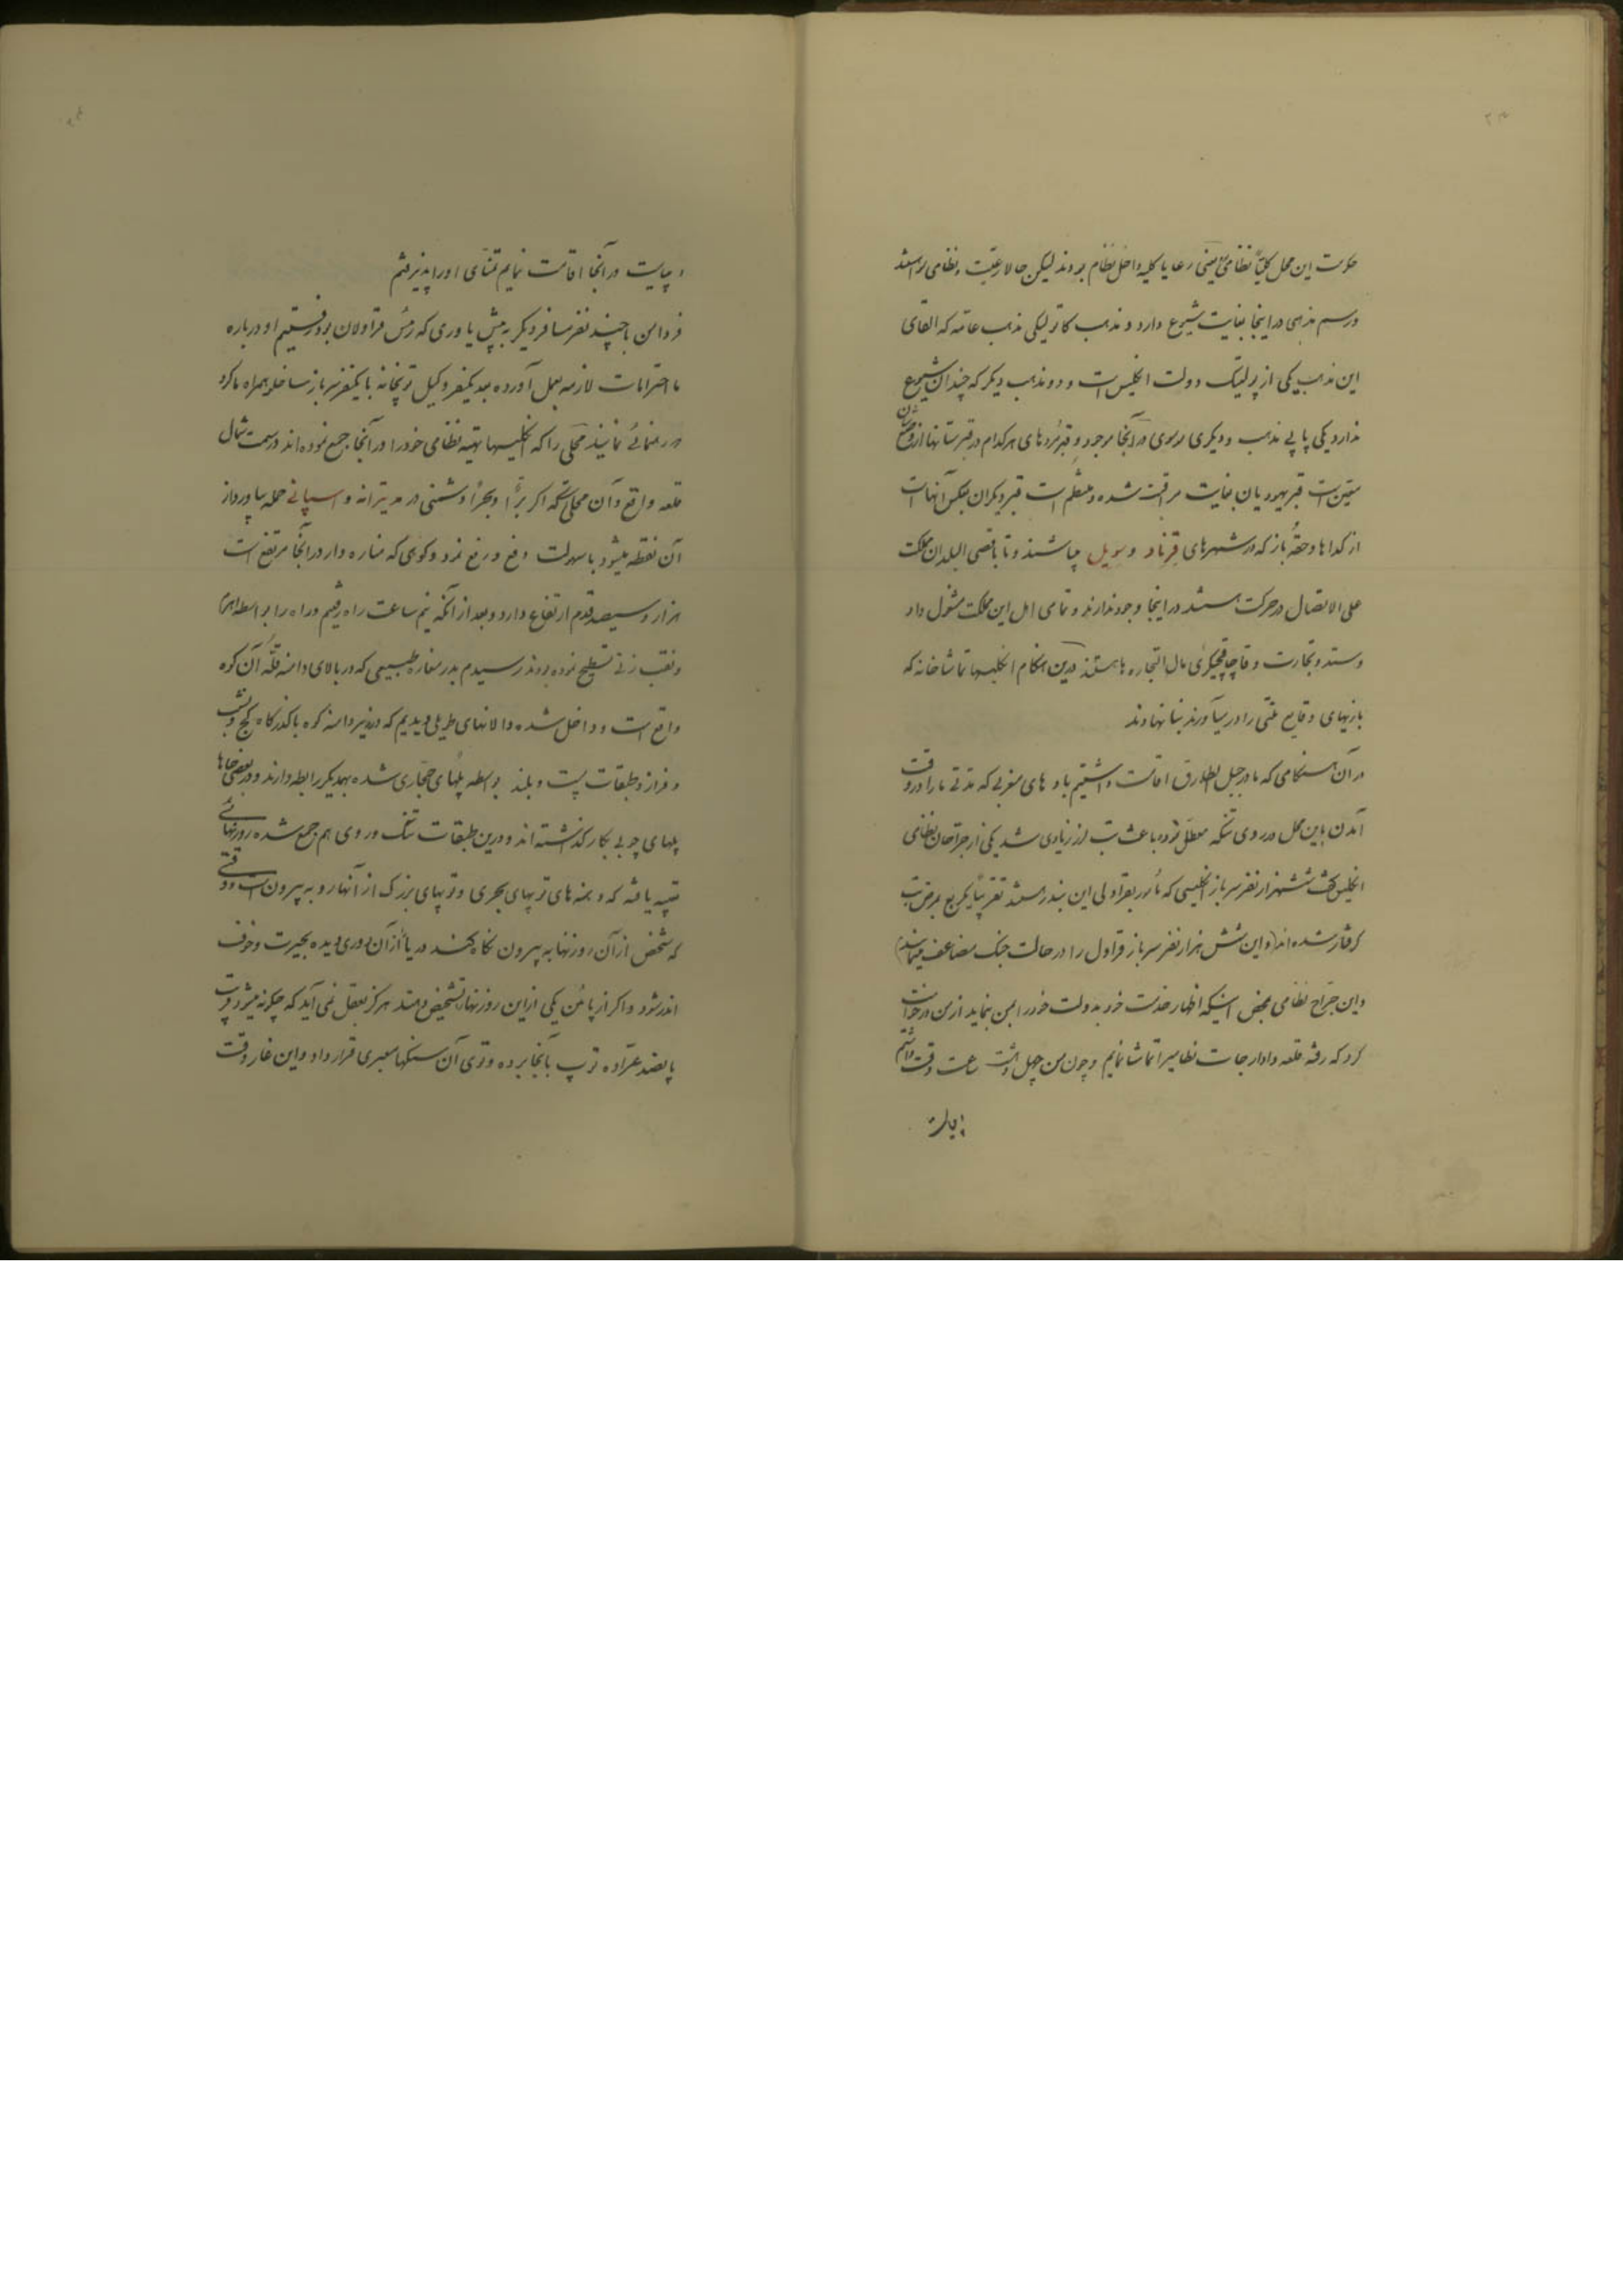 ۲۳
حکومت این محل کلیّاً نظامی یعنی رعایا کلیه داخل نظام بودند لیکن حالا رعیت و نظامی
و رسم مذهبی در اینجا بغایت شیوع دارد و مذهب کاتولیکی مذهب عامه که القای
این مذهب یکی از پولتیک دولت انگلیس است و دو مذهب دیگر که چندان شیوع
ندارد یکی پاپی مذهب و دیگری موسوی در آنجا موجود و قبر مردهای هر کدام در قبرستانها از وضعشان
معین است قبر یهودیان بغایت مراقبت شده و منظم است قبر دیگران بعکس آنهاست
از گداها و حقه باز که در شهرهای قرناد و سویل میباشند و تا باقصی البلدان مملکت
علی الاتصال در حرکت هستند در اینجا وجود ندارند و تمامی اهل این مملکت مشغول داد
و ستد و تجارت و قاچاقچیگری مال التجاره ها هستند درین هنگام انگلیسها تماشاخانه که
بازیهای وقایع ملتی را در میآورند بنا نهادند
در آن هنگامی که ما در جبل الطارق اقامت داشتیم باد های مغربی که مدتی ما را در وقت
آمدن باین محل در روی تنگه معطل نموده باعث تب لرز زیادی شد یکی از جراحان نظامی
انگلیس گفت ششهزار نفر سرباز انگلیسی که مأمور بقراولی این بندر هستند تقریباً یکربع بمرض تب
گرفتار شده اند (و این شش هزار نفر سرباز قراول را در حالت جنگ مضاعف مینمایند)
و این جراح نظامی بمحض اینکه اظهار خدمت خود بدولت خود را بمن بنماید از من درخواست
کرد که رفته قلعه و ادارجات نظامیرا تماشا نمایم و چون من چهل و هشت ساعت وقت داشتم
و میبایست در آنجا اقامت نمایم تمنای او را پذیرفتم
فردا من با چند نفر مسافر دیگر به پیش یاوری که رئیس قراولان بود رفتیم او درباره
ما احترامات لازمه بعمل آورده بعد یکنفر وکیل توپخانه با یکنفر سرباز ساخلو همراه ما کرد
که رهنمائی نمایند محلی را که انگلیسها تهیه نظامی خود را در آنجا جمع نموده اند در سمت شمال
قلعه واقع و آن محلی است که اگر برّاً و بحراً دشمنی در مدیترانه و اسپانی حمله بیاورد از
آن نقطه میشود با سهولت دفع و رفع نمود و کوهی که مناره وار در آنجا مرتفع است
هزار و سیصد قدم ارتفاع دارد و بعد از آنکه نیم ساعت راه رفتیم و راه را بواسطه اهرم
و نقب زنی تسطیح نموده بودند رسیدیم بدر مغاره طبیعی که در بالای دامنه قله آن کوه
واقع است و داخل شده دالانهای طویلی دیدیم که در زیر دامنه کوه با گذرگاه کج و نشیب
و فراز و طبقات پست و بلند بواسطه پلهای حجاری شده بهمدیگر رابطه دارند و در بعضی جاها
پلهای چوبی بکار گذاشته اند و درین طبقات تنگ و روی هم جمع شده روزنهائی
تعبیه یافته که دهنه های توپهای بحری و توپهای بزرگ از آنها رو به بیرون است وقتی
که شخص از آن روزنها به بیرون نگاه بکند دریا را از آن دوری دیده بحیرت و خوف
اندر شود و اگر از پائین یکی از این روزنها را تشخیص دهند هرگز بعقل نمی آید که چگونه میشود قریب
پانصد عراده توپ بآنجا برده و توی آن سنگها معبری قرار داد و این غار وقت